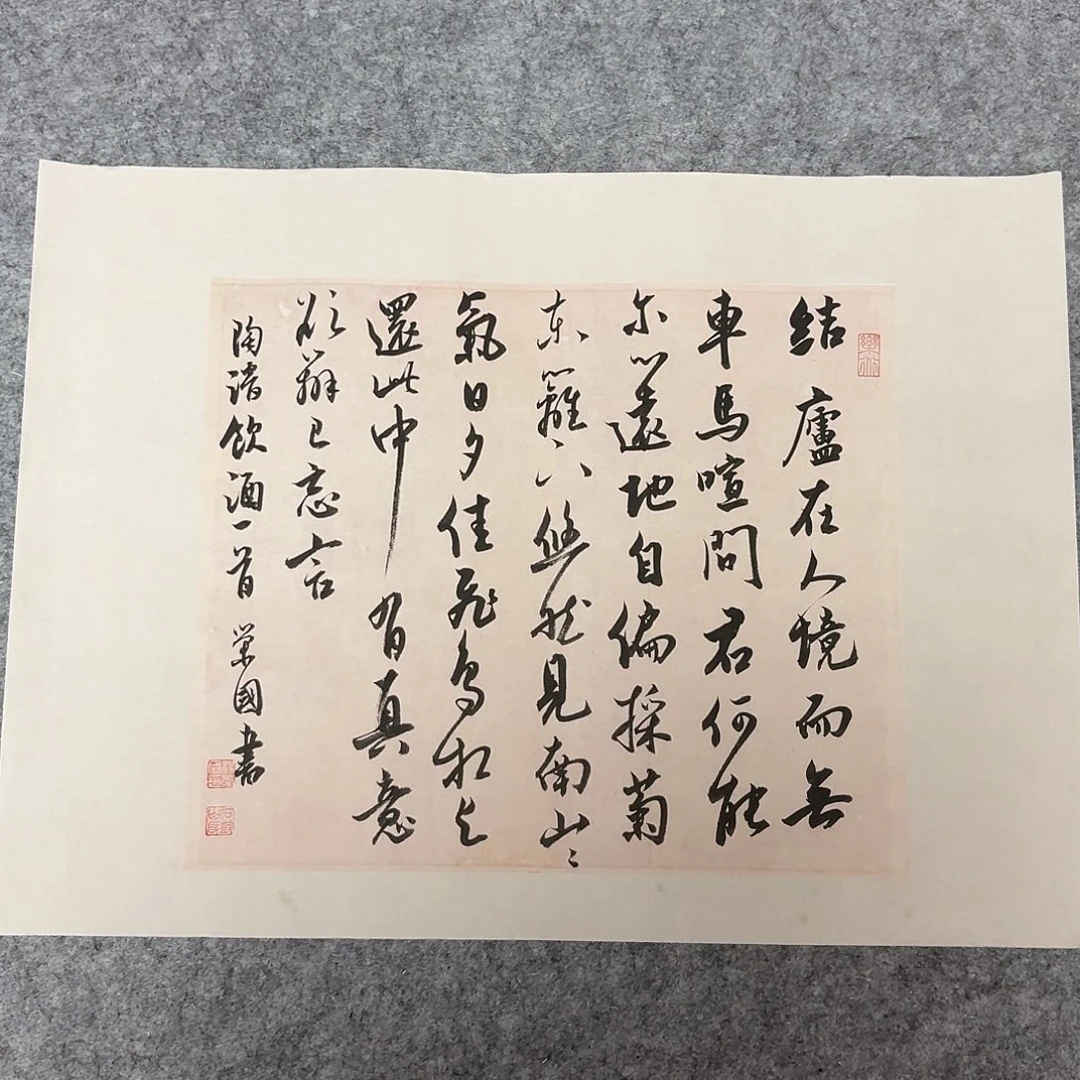 結廬在人境而無
車馬喧問君何能
尓心遠地自偏採菊
東籬下悠然見南山〻
氣日夕佳飛鳥相與
還此中有真意
欲辨已忘言
陶潜飲酒一首 榮國書